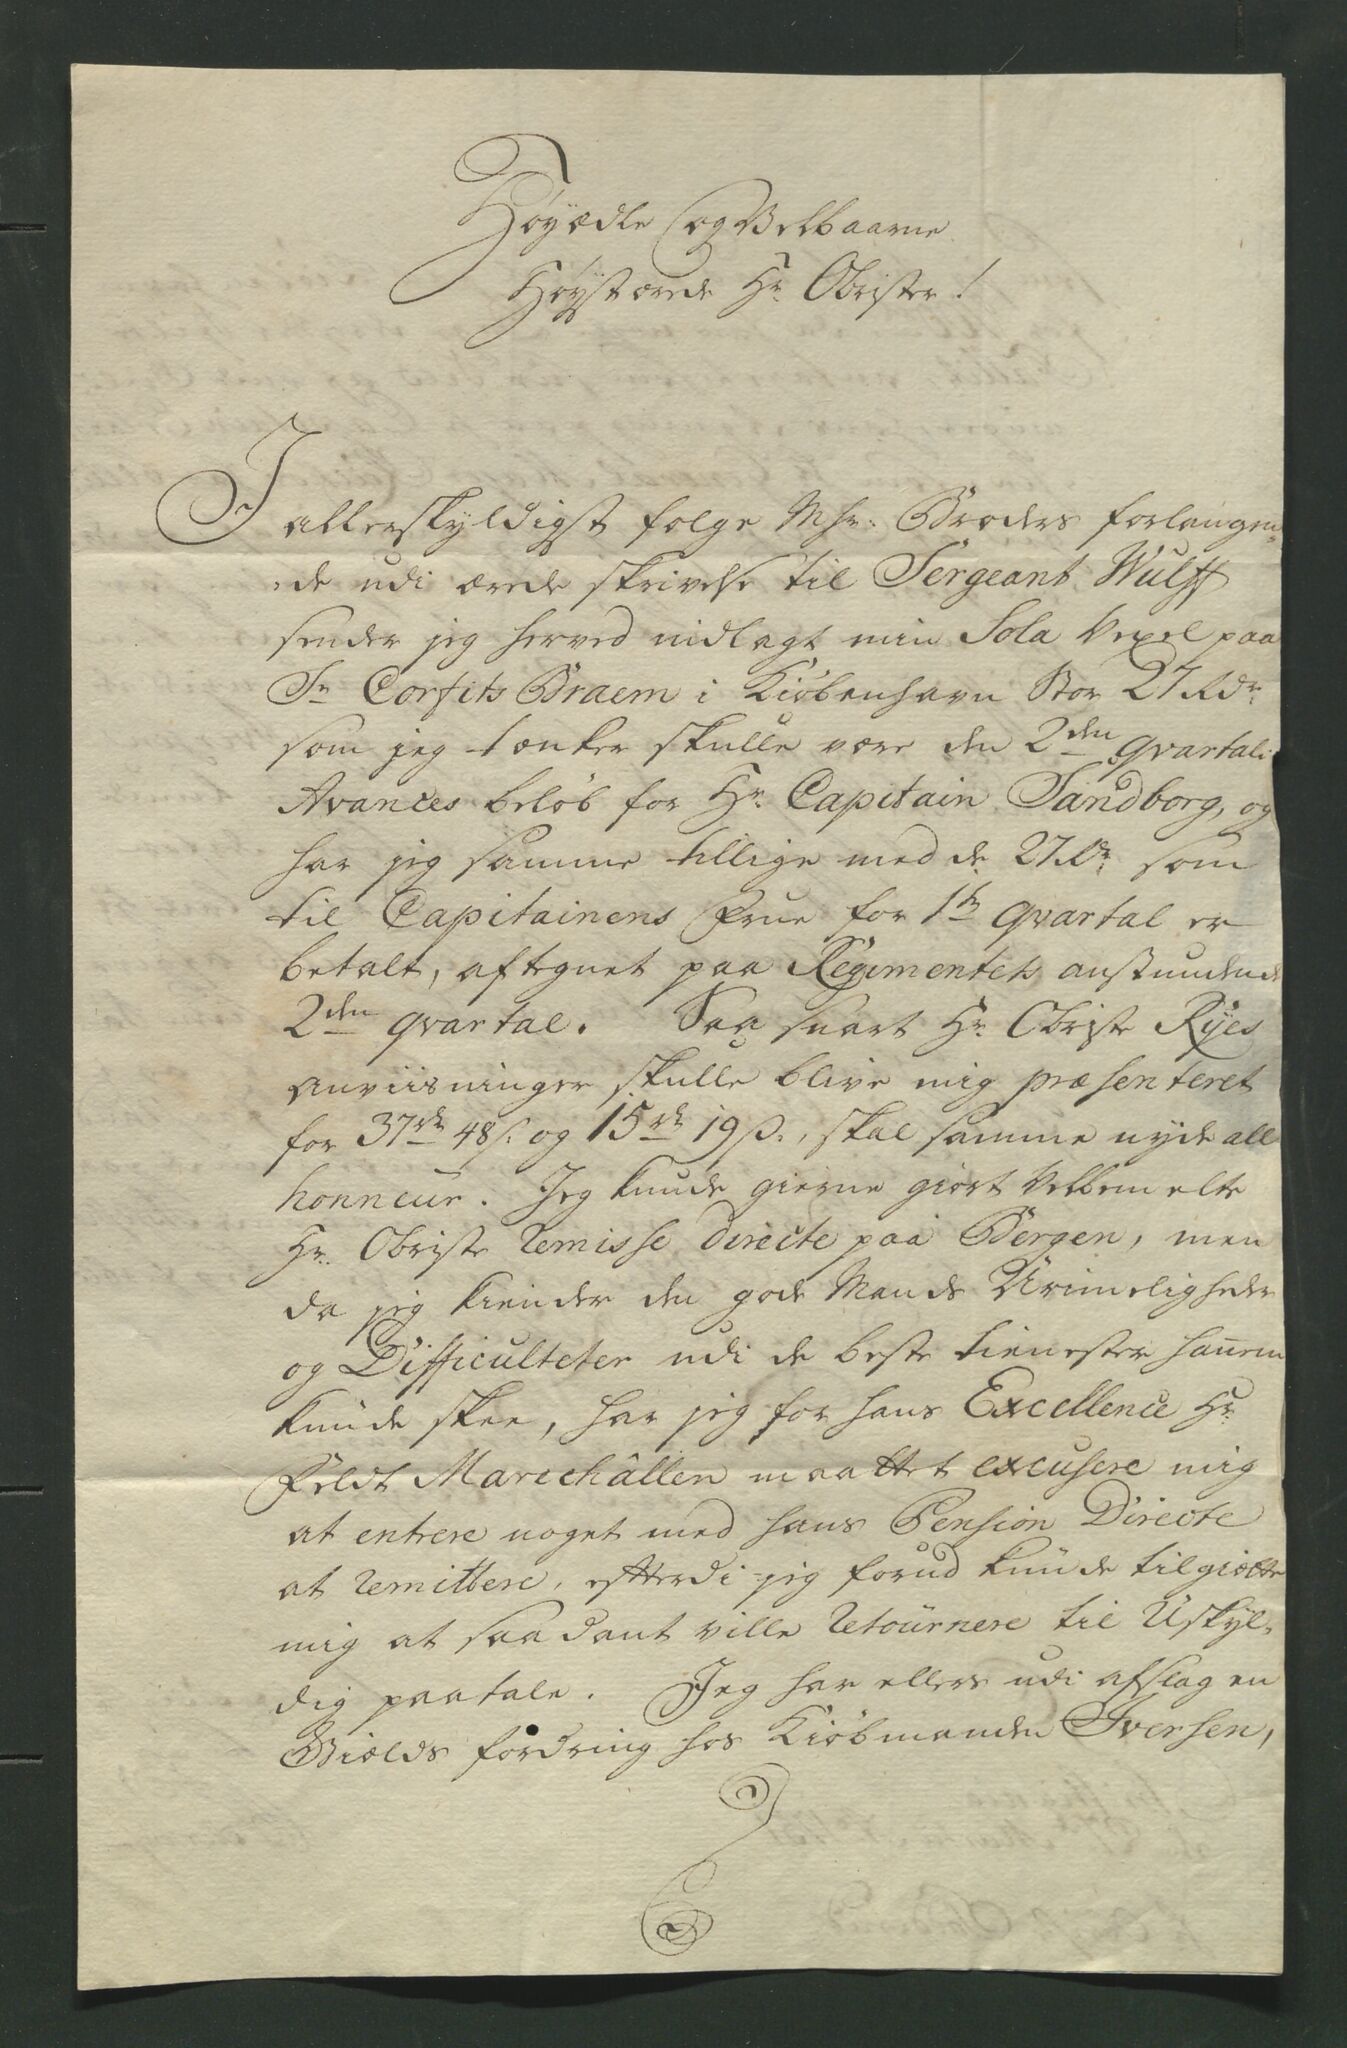 Høyædle og Velbaarne
Høystærede Hr. Obrister!
I
allerskyldigst følge Mhr: Broders forlangen,,
,,de udi ærede skrivelse til Sergeant Wulff
sender jeg herved indlagt min Sola Vexel paa
Sr. Corfits Braem i Kiøbenhavn Stor 27 Rdr.
som jeg tænker skulle være den 2den qvartals
Avances beløb for Hr. Capitain Sandborg, og
har jeg samme tillige med de 27 Rdr. som
til Capitainens Frue for 1te qvartal er
betalt, aftegnet paa Regimentets anstundende
2den qvartal. Saa snart Hr. Obriste Ryes
anviisninger skulle blive mig præsenteret
for 37rd 48s. og 15rd 19s., skal samme nyde all
honneur. Jeg kunde gierne giort Velbemelte
Hr. Obriste remisse directe paa Bergen, men
da jeg kiender den gode Mands Urimeligheder
og Difficulteter udi de beste tienester hannem
kunde skee, har jeg for hans Excellence Hr.
Feldt Marechâllen maattet excusere mig
at entrere noget med hans Pension Directe
at remittere, efterdi jeg forud kunde tilgiette
mig at saadant ville retournere til Uskyl,,
dig paatale. Jeg har ellers udi afslag en
Biælds fordring hos Kiøbmanden Iversen,